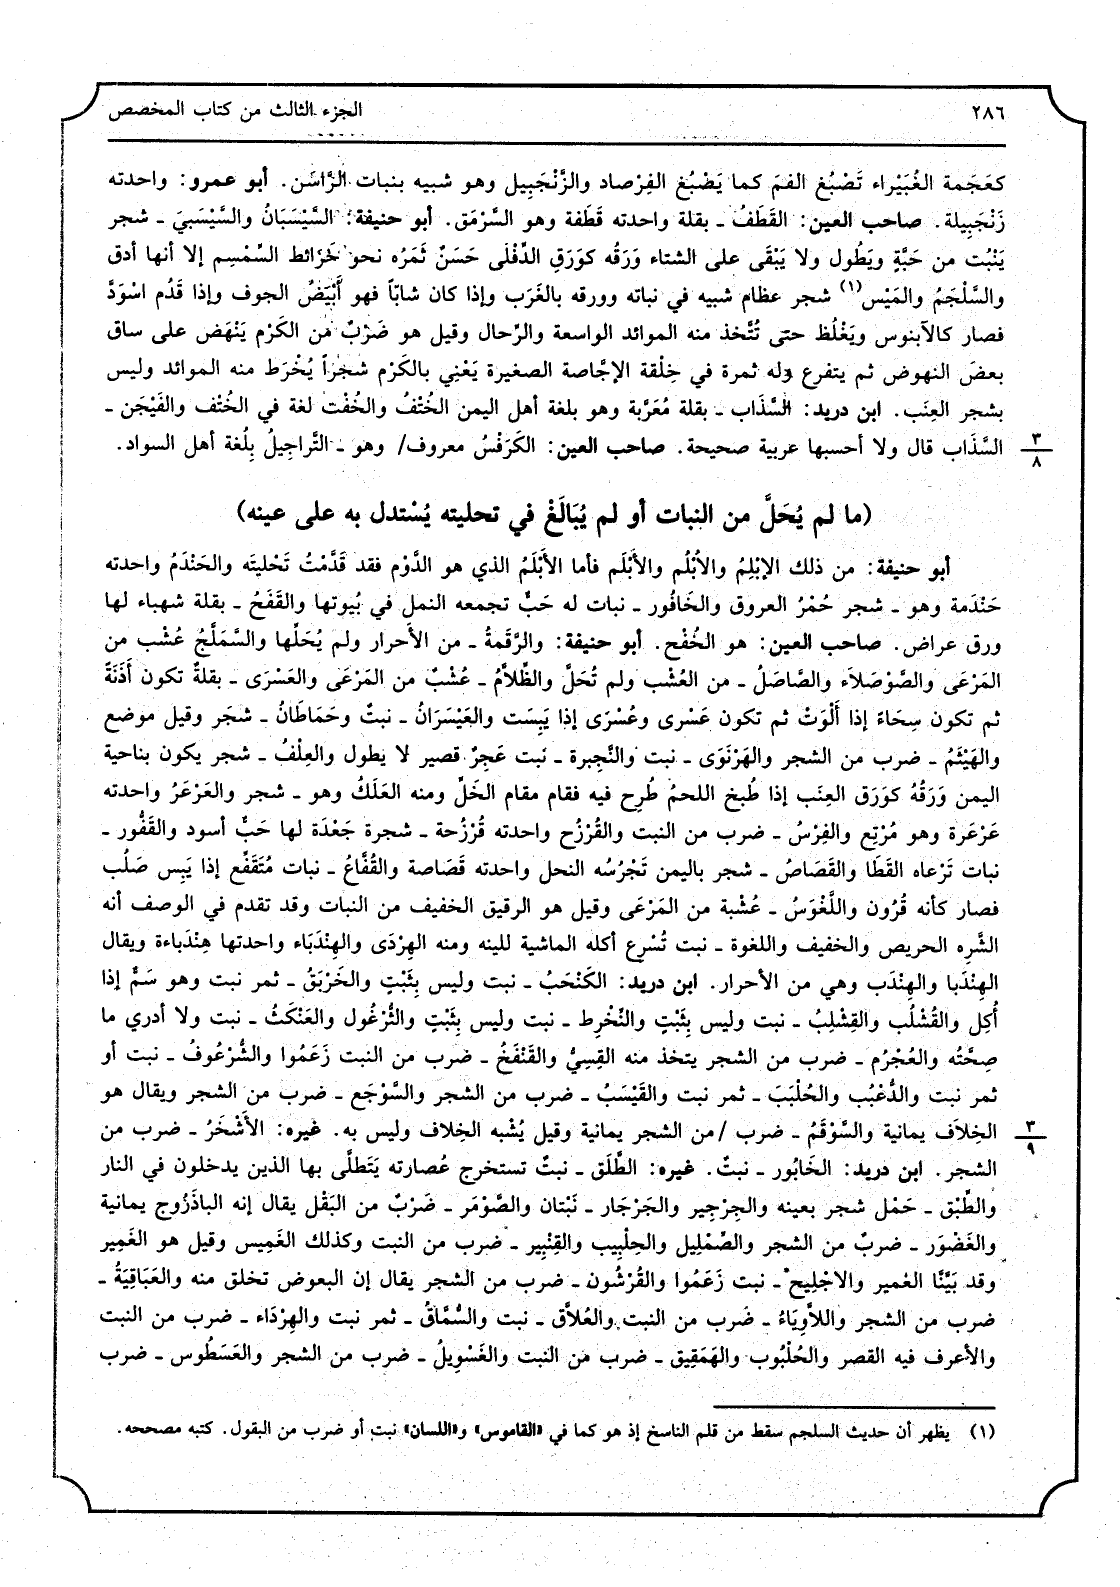 ٢٨٦
الجزء الثالث من كتاب المخصص
كعَجَمة الغُبَيْراء تَصْبُغ الفمَ كما يَصْبُغ الفِرْصاد والزَّنْجَبِيل وهو شبيه بنبات الرَّاسَن. أبو عمرو: واحدته
زَنْجَبِيلة. صاحب العين: القَطَفُ ـ بقلة واحدته قَطَفة وهو السَّرْمَق. أبو حنيفة: السَّيْسَبَانُ والسَّيْسَبيَ ـ شجر
يَنْبُت من حَبَّةٍ ويَطُول ولا يَبْقَى على الشتاء وَرَقُه كوَرَقِ الدِّفْلَى حَسَنٌ ثَمَرُه نحو خَرَائط السِّمْسِم إلا أنها أدق
والسَّلْجَمُ والمَيْس(١) شجر عظام شبيه في نباته وورقه بالغَرَب وإذا كان شابّاً فهو أَبْيَضُ الجوف وإذا قَدُم اسْوَدَّ
فصار كالآبنوس ويَغْلُظ حتى تُتَّخذ منه الموائد الواسعة والرِّحال وقيل هو ضَرْبٌ من الكَرْم يَنْهَض على ساق
بعضَ النهوض ثم يتفرع وله ثمرة في خِلْقة الإِجَّاصة الصغيرة يَعْنِي بالكَرْم شجَراً يُخْرَط منه الموائد وليس
بشجر العِنَب. ابن دريد: السَّذَاب ـ بقلة مُعَرَّبة وهو بلغة أهل اليمن الخُتْفُ والخُفْت لغة في الخُتْف والفَيْجَن ـ
السَّذَاب قال ولا أحسبها عربية صحيحة. صاحب العين: الكَرَفْسُ معروف/ وهو ـ التَّراجِيلُ بِلُغة أهل السواد.
٣
٨
(ما لم يُحَلَّ من النبات أو لم يُبَالَغْ في تحليته يُسْتدل به على عينه)
أبو حنيفة: من ذلك الإِبْلِمُ والأُبْلُم والأَبْلَم فأما الأَبْلَمُ الذي هو الدَّوْم فقد قَدَّمْتُ تَحْليتَه والحَنْدَمُ واحدته
حَنْدَمة وهو ـ شجر حُمْرُ العروق والخَافُور ـ نبات له حَبٌّ تجمعه النمل في بُيوتها والقَفَحُ ـ بقلة شهباء لها
ورق عراض. صاحب العين: هو الخُفْح. أبو حنيفة: والرَّقَمةُ ـ من الأَحرار ولم يُحَلِّها والسَّمَلَّجُ عُشْب من
المَرْعَى والصَّوْصَلاَء والصَّاصَلُ ـ من العُشْب ولم تُحَلَّ والظِّلاَّمُ ـ عُشْبٌ من المَرْعَى والعَسْرَى ـ بقلةٌ تكون أَذَنَةً
ثم تكون سِحَاءً إذا أَلْوَتْ ثم تكون عَسْرى وعُسْرَى إذا يَبِسَت والعَيْسَرَانُ ـ نبتٌ وحَمَاطَانُ ـ شجَر وقيل موضع
والهَيْثَمُ ـ ضرب من الشجر والهَرْنَوَى ـ نبت والنَّجِبرة ـ نَبت عَجِرٌ قصير لا يطول والعِلْفُ ـ شجر يكون بناحية
اليمن وَرَقُهُ كوَرَق العِنَب إذا طُبخ اللحمُ طُرِح فيه فقام مقام الخَلِّ ومنه العَلَكُ وهو ـ شجر والعَرْعَرُ واحدته
عَرْعَرة وهو مُرْتِع والفِرْسُ ـ ضرب من النبت والقُرْزح واحدته قُرْزُحة ـ شجرة جَعْدَة لها حَبٌّ أسود والقَفُّور ـ
نبات تَرْعاه القَطَا والقَصَاصُ ـ شجر باليمن تَجْرُسُه النحل واحدته قَصَاصة والقُفَّاعُ ـ نبات مُتَقَفِّع إذا يَبِس صَلُب
فصار كأنه قُرُون واللَّغْوَسُ ـ عُشْبة من المَرْعَى وقيل هو الرقيق الخفيف من النبات وقد تقدم في الوصف أنه
الشَّرِه الحريص والخفيف واللغوة ـ نبت تُسْرِع أكله الماشية للينه ومنه الهِرْدَى والهِنْدَبَاء واحدتها هِنْدَباءة ويقال
الهِنْدَبا والهِنْدَب وهي من الأحرار. ابن دريد: الكَنْحَبُ ـ نبت وليس بِثَبْتٍ والخَرْبَقُ ـ ثمر نبت وهو سَمٌّ إذا
أُكِل والقُشْلُب والقِشْلِبُ ـ نبت وليس بِثَبْتٍ والنِّخْرِط ـ نبت وليس بِثَبْتٍ والثُّرْغُول والعَنْكَثُ ـ نبت ولا أدري ما
صِحَّتُه والعُجْرُم ـ ضرب من الشجر يتخذ منه القِسِيُّ والقَنْفَخُ ـ ضرب من النبت زَعَمُوا والشُّرْعُوفُ ـ نبت أو
ثمر نبت والدُّعْبُب والحُلْبَبَ ـ ثمر نبت والقَيْسَبُ ـ ضرب من الشجر والسَّوْجَع ـ ضرب من الشجر ويقال هو
الخِلاَف يمانية والسَّوْقَمُ ـ ضرب /من الشجر يمانية وقيل يُشْبه الخِلاف وليس به. غيره: الأَشْخَرُ ـ ضرب من
٣
٩
الشجر. ابن دريد: الخَابُور ـ نبتٌ. غيره: الطَّلَق ـ نبتٌ تستخرج عُصارته يَتَطَلَّى بها الذين يدخلون في النار
والطِّبْق ـ حَمْل شجر بعينه والجِرْجِير والجَرْجَار ـ نَبْتان والصَّوْمَر ـ ضَرْبٌ من البَقْل يقال إنه الباذَرُوج يمانية
والغَضْوَر ـ ضربٌ من الشجر والصِّمْلِيل والحِلْبِيب والقِنْبِير ـ ضرب من النبت وكذلك الغَمِيس وقيل هو الغَمِير
وقد بَيَّنَّا الغمير والاجْلِيح ـ نبت زَعَمُوا والقُرْشُون ـ ضرب من الشجر يقال إن البعوض تخلق منه والعَبَاقِيَةُ ـ
ضرب من الشجر واللاَّوِيَاءُ ـ ضَرب من النبت والعُلاَّق ـ نبت والسُّمَّاقُ ـ ثمر نبت والهِرْدَاء ـ ضرب من النبت
والأعرف فيه القصر والحُلْبُوب والهَمَقِيق ـ ضرب من النبت والغَسْوِيلُ ـ ضرب من الشجر والعَسَطُوس ـ ضرب
(١) يظهر أن حديث السلجم سقط من قلم الناسخ إذ هو كما في «القاموس» و«اللسان» نبت أو ضرب من البقول. كتبه مصححه.